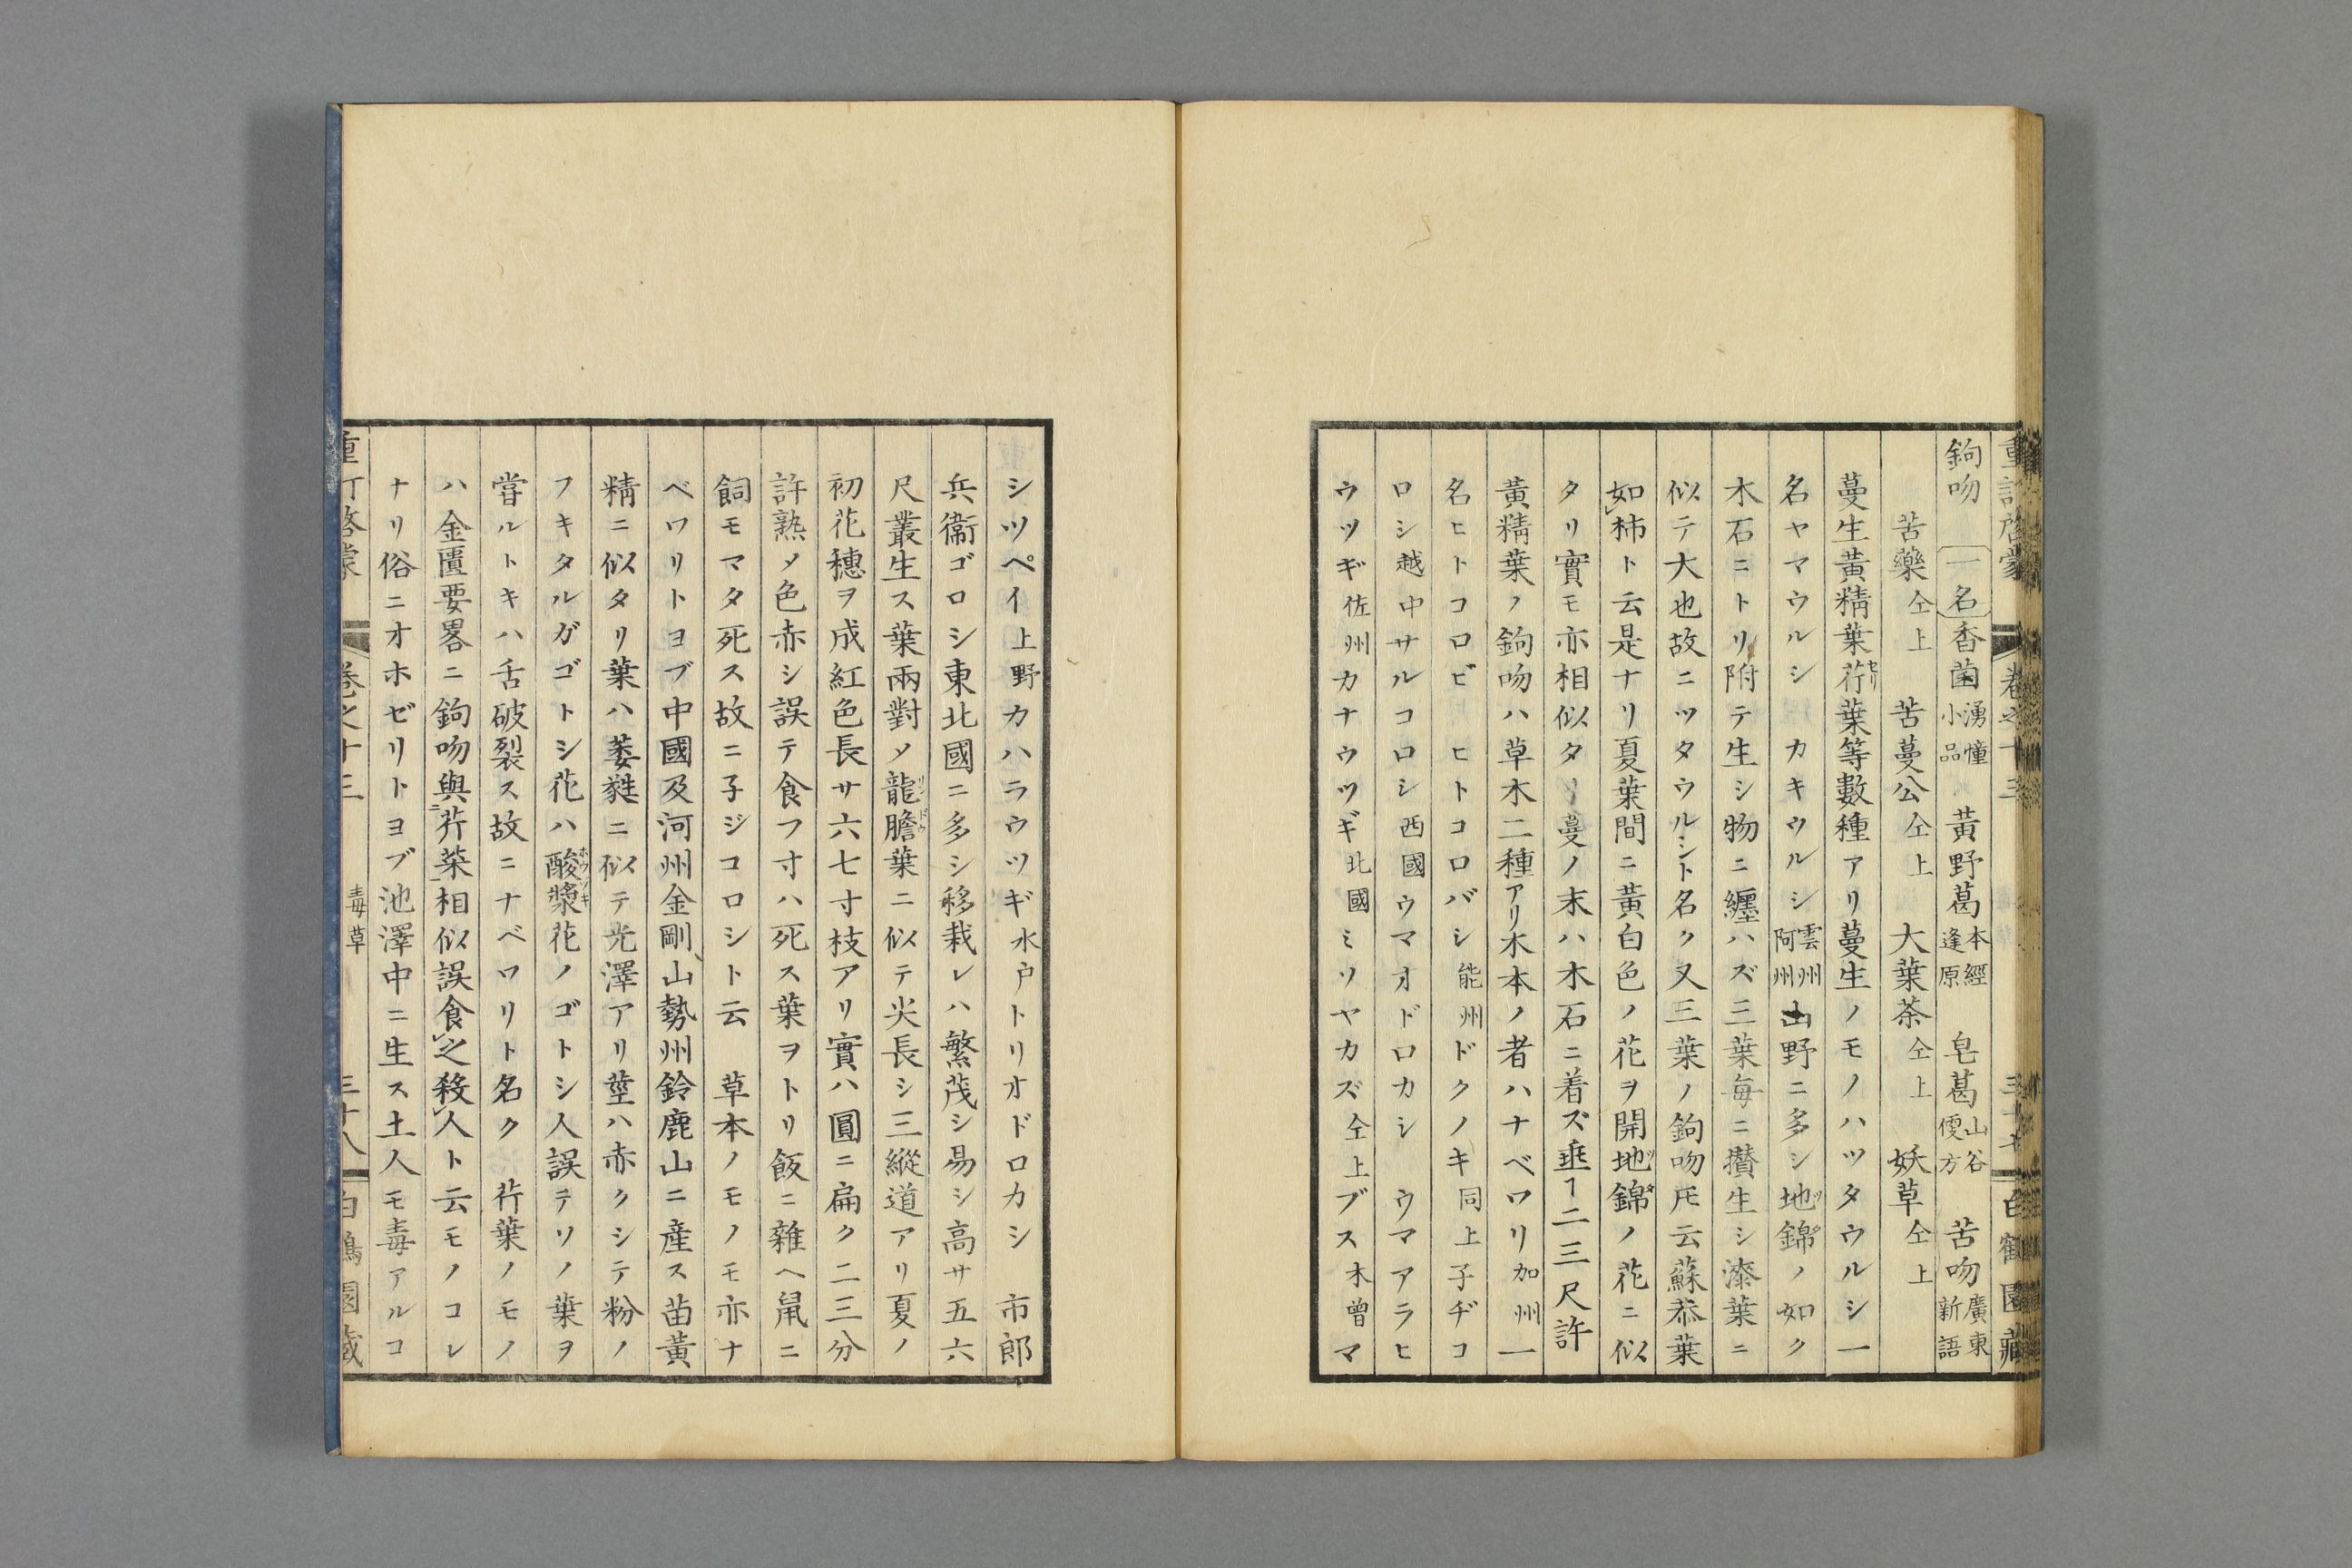 鉤吻　一名　香菌 湧幢小品　黃野葛 本經逢原　皂葛 山谷便方　苦吻 廣東新語
苦藥 仝上　苦蔓公 仝上　大葉茶 仝上　妖草 仝上
蔓生黃精葉荇セリ葉等數種アリ蔓生ノモノハツタウルシ一
名ヤマウルシ　カキウルシ 雲州阿州 山野ニ多シ地錦ツタノ如ク
木石ニトリ附テ生シ物ニ纒ハズ三葉每ニ攅生シ漆葉ニ
似テ大也故ニツタウルシト名ク又三葉ノ鉤吻𪜈云蘇恭葉
如柿ト云是ナリ夏葉間ニ黃白色ノ花ヲ開地錦ツタノ花ニ似
タリ實モ亦相似タリ蔓ノ末ハ木石ニ着ズ垂ヿ二三尺許
黃精葉ノ鉤吻ハ草木二種アリ木本ノ者ハナベワリ 加州 一
名ヒトコロビ　ヒトコロバシ 能州 ドクノキ 同上 子ヂコ
ロシ 越中 サルコロシ 西國 ウマオドロカシ　ウマアラヒ
ウツギ 佐州 カナウツギ 北國 ミソヤカズ 仝上 ブス 木曾 マ
シツペイ 上野 カハラウツギ 水戸 トリオドロカシ　市郎
兵衞ゴロシ東北國ニ多シ移栽レハ繁茂シ易シ高サ五六
尺叢生ス葉兩對〆龍膽リンドウ葉ニ似テ尖長シ三縱道アリ夏ノ
初花穗ヲ成紅色長サ六七寸枝アリ實ハ圓ニ扁ク二三分
許熟〆色赤シ誤テ食フ寸ハ死ス葉ヲトリ飯ニ雜ヘ鼠ニ
飼モマタ死ス故ニ子ジコロシト云　草本ノモノモ亦ナ
ベワリトヨブ中國及河州金剛山、勢州鈴鹿山ニ産ス苗黃
精ニ似タリ葉ハ萎蕤ニ似テ光澤アリ莖ハ赤クシテ粉ノ
フキタルガゴトシ花ハ酸漿ホウヅキ花ノゴトシ人誤テソノ葉ヲ
嘗ルトキハ舌破裂ス故ニナベワリト名ク　荇葉ノモノ
ハ金匱要畧ニ鉤吻與芹菜相似誤食之殺人ト云モノコレ
ナリ俗ニオホゼリトヨブ池澤中ニ生ス土人モ毒アルコ
卷之十三　毒草　三十八